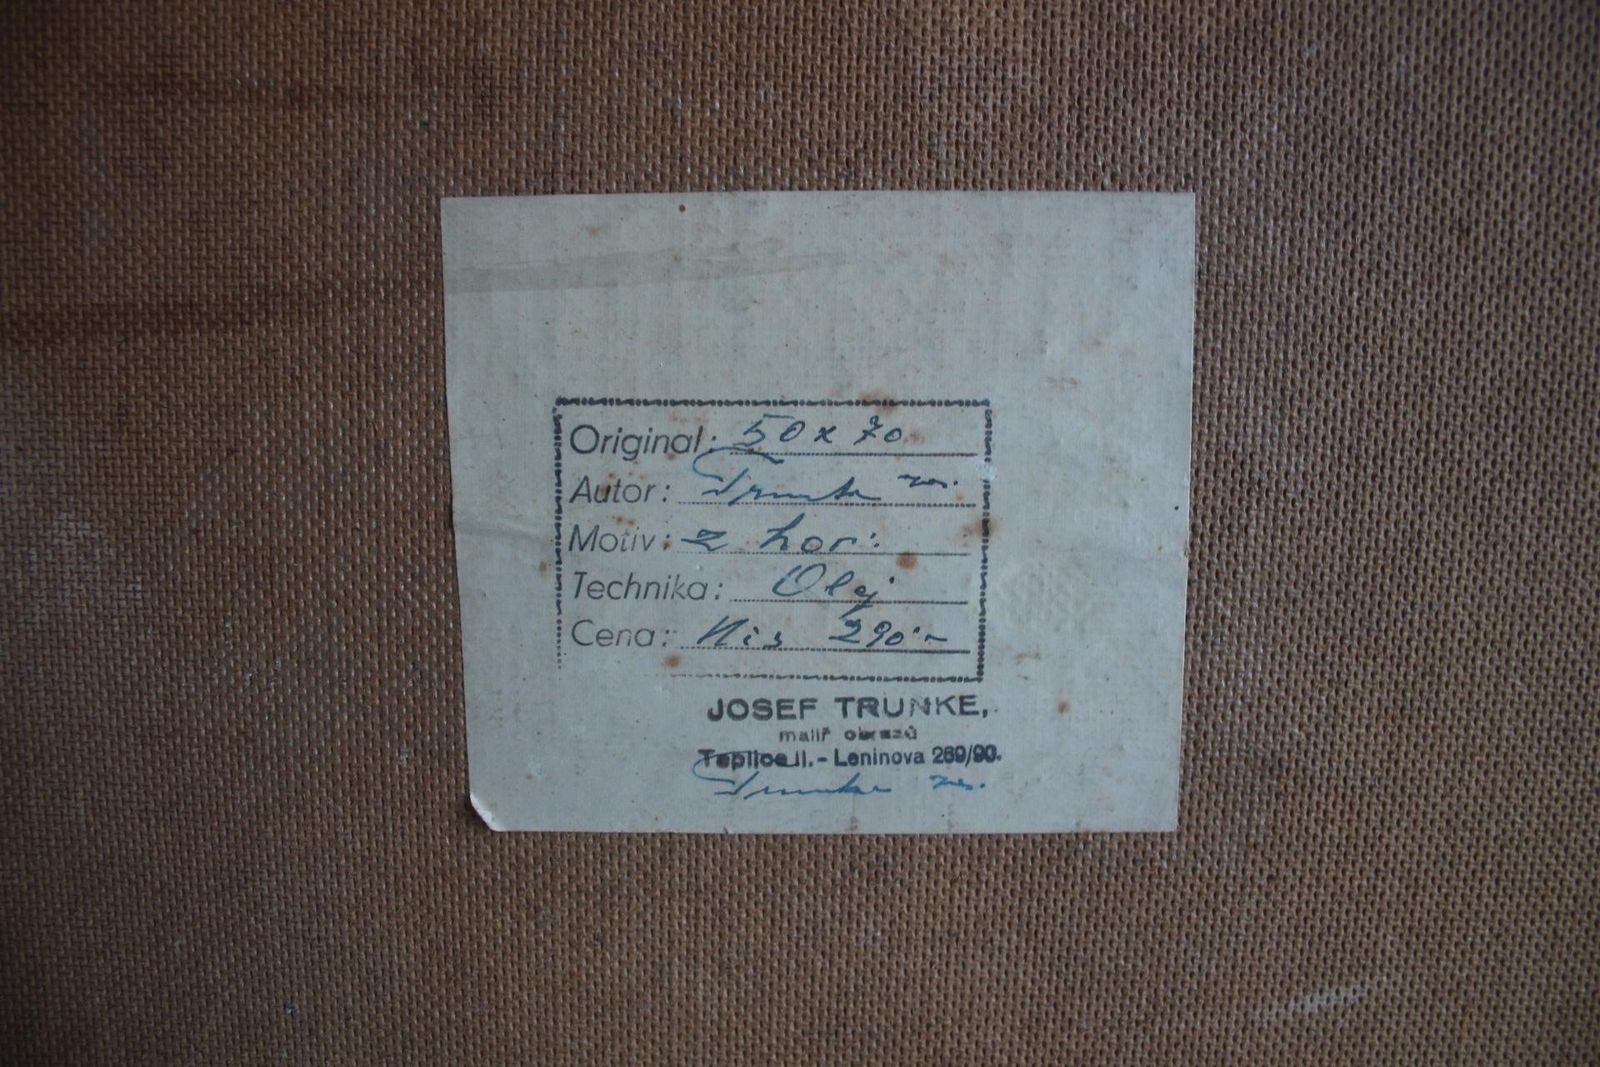 Original: 50 x 70
Autor: Trunke
Motiv: z hor:
Technika: Olej
Cena: Kčs 290:-
JOSEF TRUNKE,
malíř obrazů
Teplice II. - Leninova 269/90.
Trunke